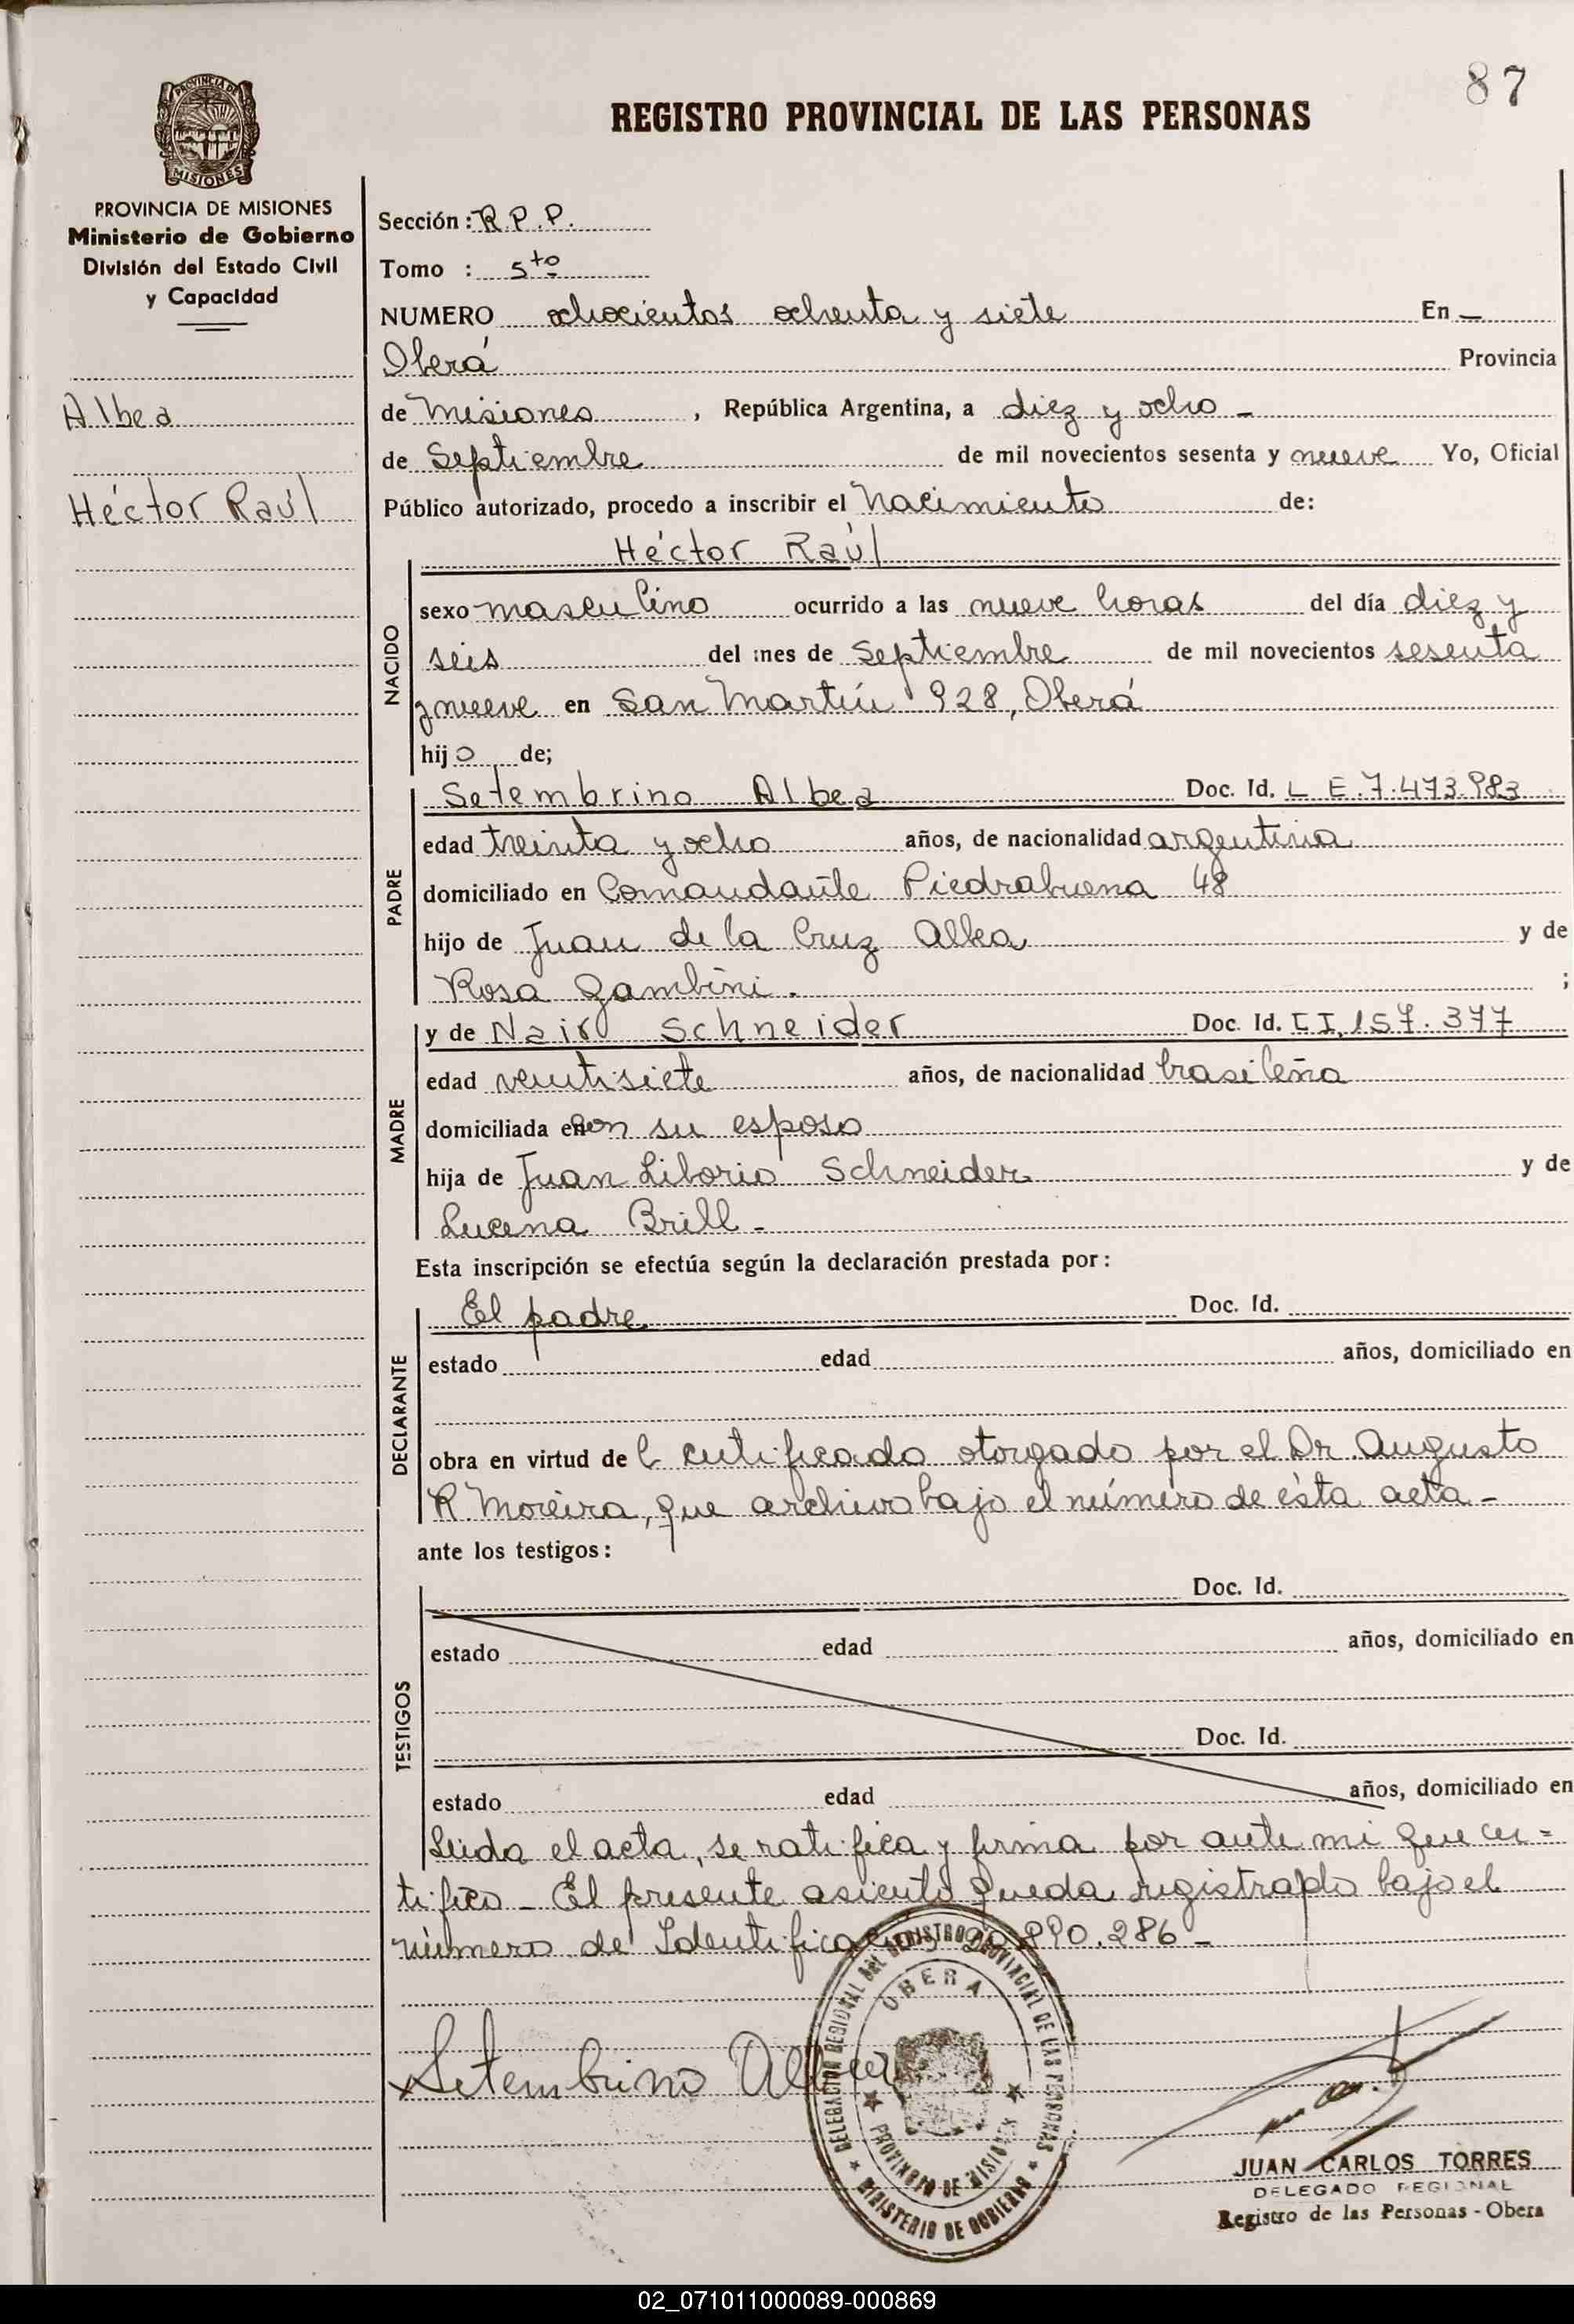 87
REGISTRO PROVINCIAL DE LAS PERSONAS
PROVINCIA DE
MISIONES
PROVINCIA DE MISIONES
Ministerio de Gobierno
División del Estado Civil
y Capacidad
Albea
Héctor Raúl
Sección: R.P.P.
Tomo : 5to
NUMERO ochocientos ochenta y siete En —
Oberá Provincia
de Misiones, República Argentina, a diez y ocho -
de Septiembre de mil novecientos sesenta y nueve Yo, Oficial
Público autorizado, procedo a inscribir el Nacimiento de:
Héctor Raúl
NACIDO
sexo masculino ocurrido a las nueve horas del día diez y
seis del mes de Septiembre de mil novecientos sesenta
y nueve en San Martín 928, Oberá
hijo de;
PADRE
Setembrino Albea Doc. Id. L E. 7.473.983
edad treinta y ocho años, de nacionalidad argentina
domiciliado en Comandante Piedrabuena 48
hijo de Juan de la Cruz Albea y de
Rosa Gambini. ;
MADRE
y de Nair Schneider Doc. Id. C I. 157.377
edad veintisiete años, de nacionalidad brasileña
domiciliada en con su esposo
hija de Juan Liborio Schneider y de
Lucena Brill -
Esta inscripción se efectúa según la declaración prestada por:
DECLARANTE
El padre Doc. Id.
estado edad años, domiciliado en
obra en virtud del certificado otorgado por el Dr. Augusto
R. Moreira, que archivo bajo el número de ésta acta -
ante los testigos:
TESTIGOS
Doc. Id.
estado edad años, domiciliado en
Doc. Id.
estado edad años, domiciliado en
Leida el acta, se ratifica y firma por ante mi que cer=
tifico - El presente asiento queda registrado bajo el
número de Identificación 890.286 -
Setembrino Albea
DELEGACION REGIONAL DEL REGISTRO PROVINCIAL DE LAS PERSONAS
OBERA
PROVINCIA DE MISIONES
MINISTERIO DE GOBIERNO
JUAN CARLOS TORRES
DELEGADO REGIONAL
Registro de las Personas - Obera
02_071011000089-000869